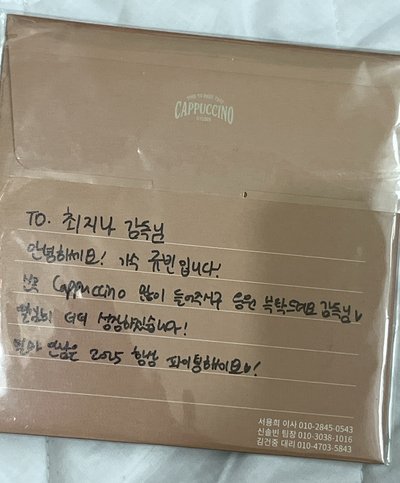 CAPPUCCINO
TO. 최지나 감독님
안녕하세요! 가수 규빈입니다!
Cappuccino 많이 들어주시구 응원 부탁드려요 감독님♥
열심히 더더 성장하겠습니다!
얼마 안남은 2025 항상 파이팅하세요♥!
서용희 이사 010-2845-0543
신솔빈 팀장 010-3038-1016
김건중 대리 010-4703-5843